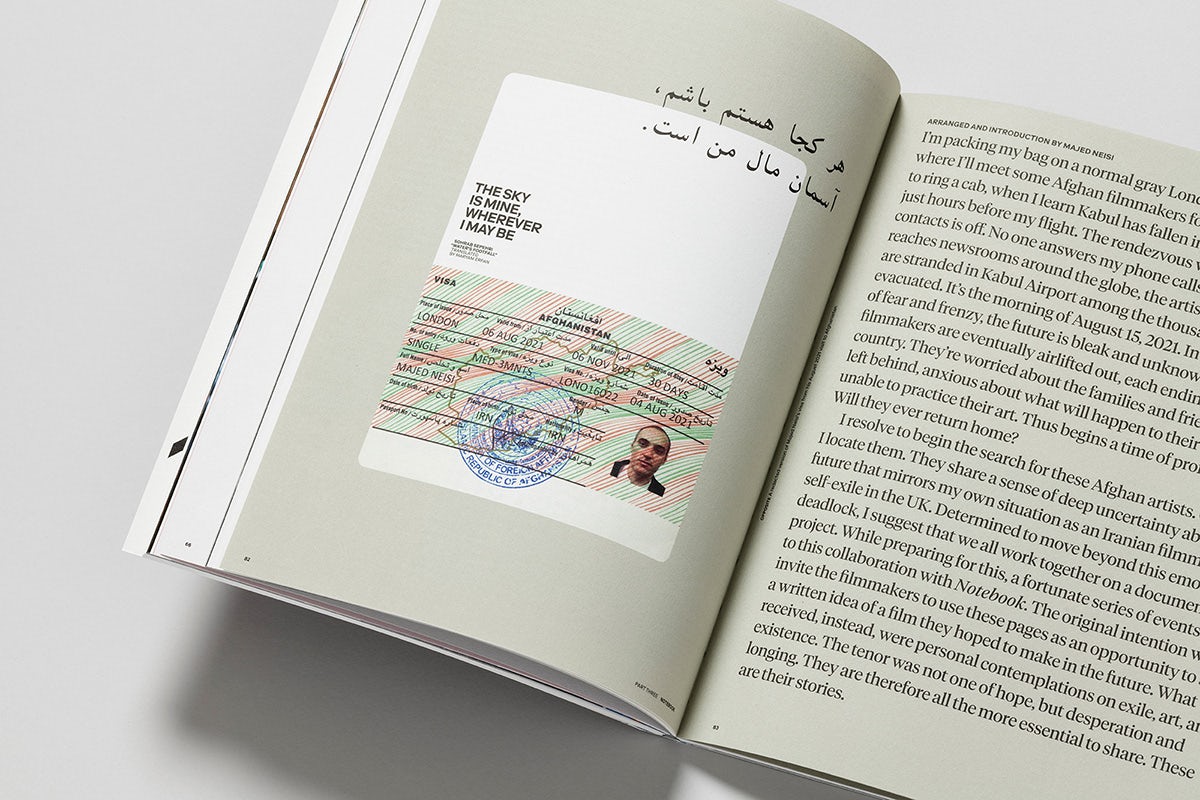 هر کجا هستم باشم،
آسمان مال من است.
THE SKY
IS MINE,
WHEREVER
I MAY BE
SOHRAB SEPEHRI
"WATER'S FOOTFALL"
TRANSLATED
BY MARYAM ERFAN
VISA
افغانستان
AFGHANISTAN
ویزه
Place of issue
Valid from
Valid until
Duration of stay
LONDON
06 AUG 2021
06 NOV 2021
30 DAYS
No. of entry
Type of Visa
Visa No.
Date of issue
SINGLE
MED 3MNTS
LONO16022
04 AUG 2021
Full Name
MAJED NEISI
Date of birth
IRN
IRN
Passport No
OF FOREIGN AFFA
REPUBLIC OF AFGHA
68
62
PART THREE NOTEBOOK
ARRANGED AND INTRODUCTION BY MAJED NEISI
I'm packing my bag on a normal gray Lond
where I'll meet some Afghan filmmakers fo
to ring a cab, when I learn Kabul has fallen i
just hours before my flight. The rendezvous w
contacts is off. No one answers my phone call
reaches newsrooms around the globe, the artis
are stranded in Kabul Airport among the thous
evacuated. It's the morning of August 15, 2021. In
of fear and frenzy, the future is bleak and unknow
filmmakers are eventually airlifted out, each endin
country. They're worried about the families and frie
left behind, anxious about what will happen to their
unable to practice their art. Thus begins a time of pro
Will they ever return home?
I resolve to begin the search for these Afghan artists.
I locate them. They share a sense of deep uncertainty ab
future that mirrors my own situation as an Iranian filmm
self-exile in the UK. Determined to move beyond this emo
deadlock, I suggest that we all work together on a documen
project. While preparing for this, a fortunate series of events
to this collaboration with Notebook. The original intention w
invite the filmmakers to use these pages as an opportunity to
a written idea of a film they hoped to make in the future. What
received, instead, were personal contemplations on exile, art, an
existence. The tenor was not one of hope, but desperation and
longing. They are therefore all the more essential to share. These
are their stories.
63